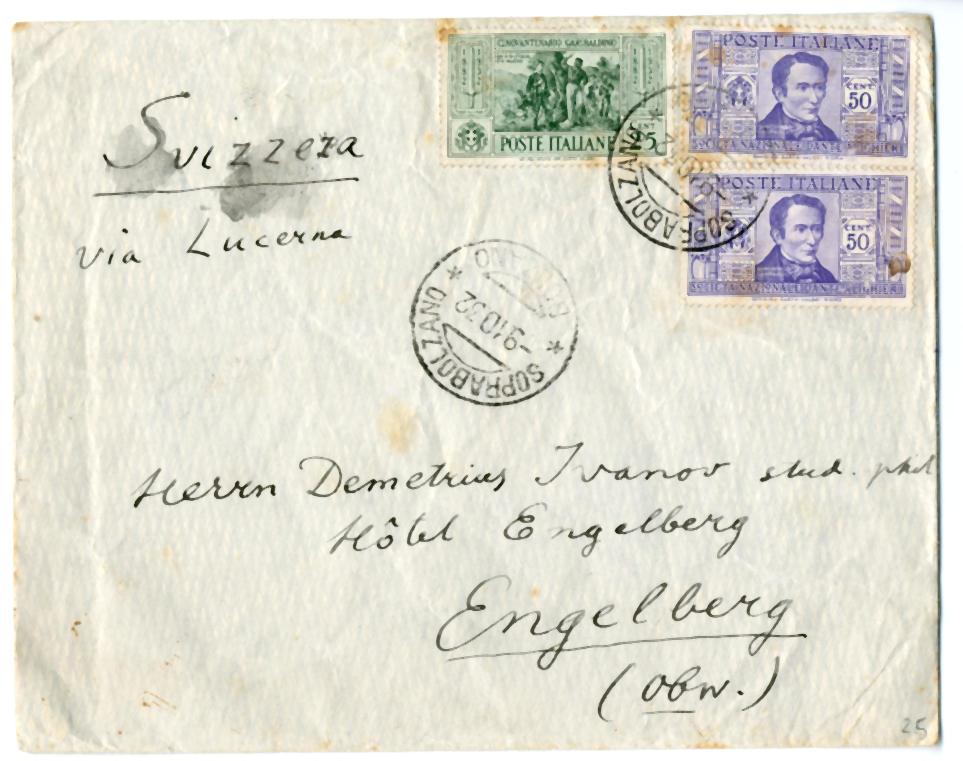 CINQVANTENARIO GARIBALDINO
POSTE ITALIANE
CENT 25
POSTE ITALIANE
CENT 50
SOCIETÀ NAZIONALE DANTE ALIGHIERI
POSTE ITALIANE
CENT 50
SOCIETÀ NAZIONALE DANTE ALIGHIERI
SOPRABOLZANO
Svizzera
via Lucerna
SOPRABOLZANO
-9.10.32
Herrn Demetrius Ivanov stud. phil
Hôtel Engelberg
Engelberg
(Obw.)
25